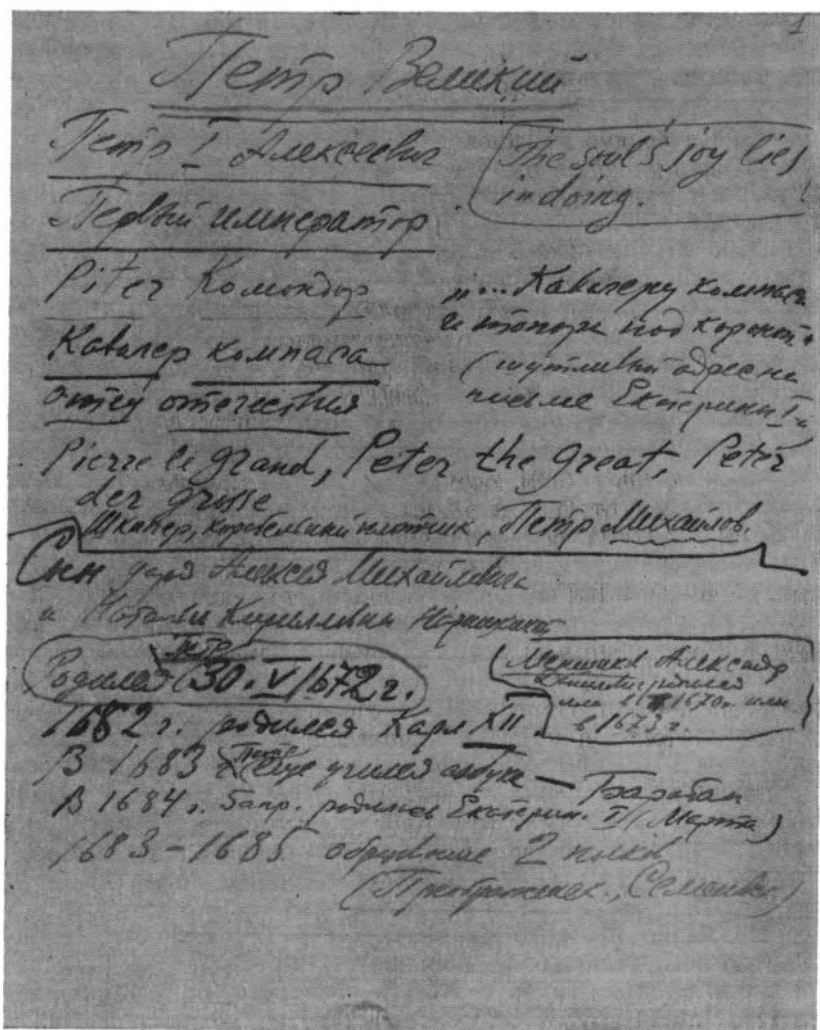 1
Петр Великий
Петр I Алексеевич
The soul's joy lies
in doing.
Первый император
Piter Комондор
Кавалер компаса
отец отечества
„... Кавалеру компаса
и топора под
(шутливый адрес на
письме Екатерины I")
Pierre le grand, Peter the Great, Peter
der grosse
Шкипер, корабельный плотник, Петр Михайлов.
Сын царя Алексея Михайловича
и Натальи Кирилловны Нарышкиной
Петр
Родился 30. V 1672 г.
Меншиков Александр
родился
или в 1670 г. или
в 1673 г.
1682 г. родился Карл XII
В 1683 г. Петр еще учился азбуке — Барабан
В 1684 г. 5 апр. родилась Екатерин. I (Марта)
1683–1685 2 полков
(Преображенск., Семеновск.)